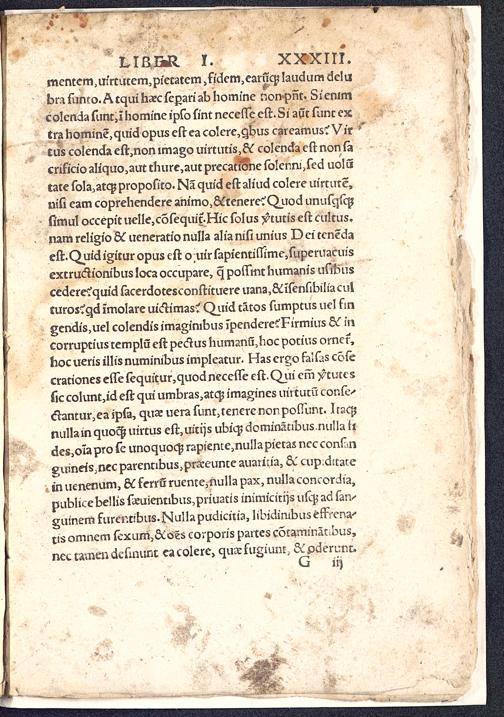 LIBER I. XXXIII.
mentem, uirtutem, pietatem, fidem, earũq; laudum delu
bra sunto. Atqui hæc separi ab homine non pñt. Si enim
colenda sunt, ĩ homine ipso sint necesse est. Si aũt sunt ex
tra hominẽ, quid opus est ea colere, qbus careamus? Vir
tus colenda est, non imago uirtutis, & colenda est non sa
crificio aliquo, aut thure, aut precatione solenni, sed uolũ
tate sola, atq; proposito. Nã quid est aliud colere uirtutẽ,
nisi eam coprehendere animo, & tenere? Quod unusqsq;
simul occepit uelle, cõsequiť. Hic solus v̉tutis est cultus.
nam religio & ueneratio nulla alia nisi unius Dei tenẽda
est. Quid igitur opus est o uir sapientissime, superuacuis
extructionibus loca occupare, q̃ possint humanis usibus
cedere? quid sacerdotes constituere uana, & ĩsensibilia cul
turos? qd ĩmolare uictimas? Quid tãtos sumptus uel fin
gendis, uel colendis imaginibus ĩpendere? Firmius & in
corruptius templũ est pectus humanũ, hoc potius orneť,
hoc ueris illis numinibus impleatur. Has ergo falsas cõse
crationes esse sequitur, quod necesse est. Qui em̃ v̉tutes
sic colunt, id est qui umbras, atq; imagines uirtutũ conse-
ctantur, ea ipsa, quæ uera sunt, tenere non possunt. Itaq;
nulla in quoq; uirtus est, uitijs ubiq; dominãtibus. nulla fi
des, oĩa pro se unoquoq; rapiente, nulla pietas nec consan
guineis, nec parentibus, præeunte auaritia, & cupiditate
in uenenum, & ferrũ ruente, nulla pax, nulla concordia,
publice bellis sæuientibus, priuatis inimicitijs usq; ad san-
guinem furentibus. Nulla pudicitia, libidinibus effrena-
tis omnem sexum, & oẽs corporis partes cõtaminãtibus,
nec tamen desinunt ea colere, quæ fugiunt, & oderunt.
G iij